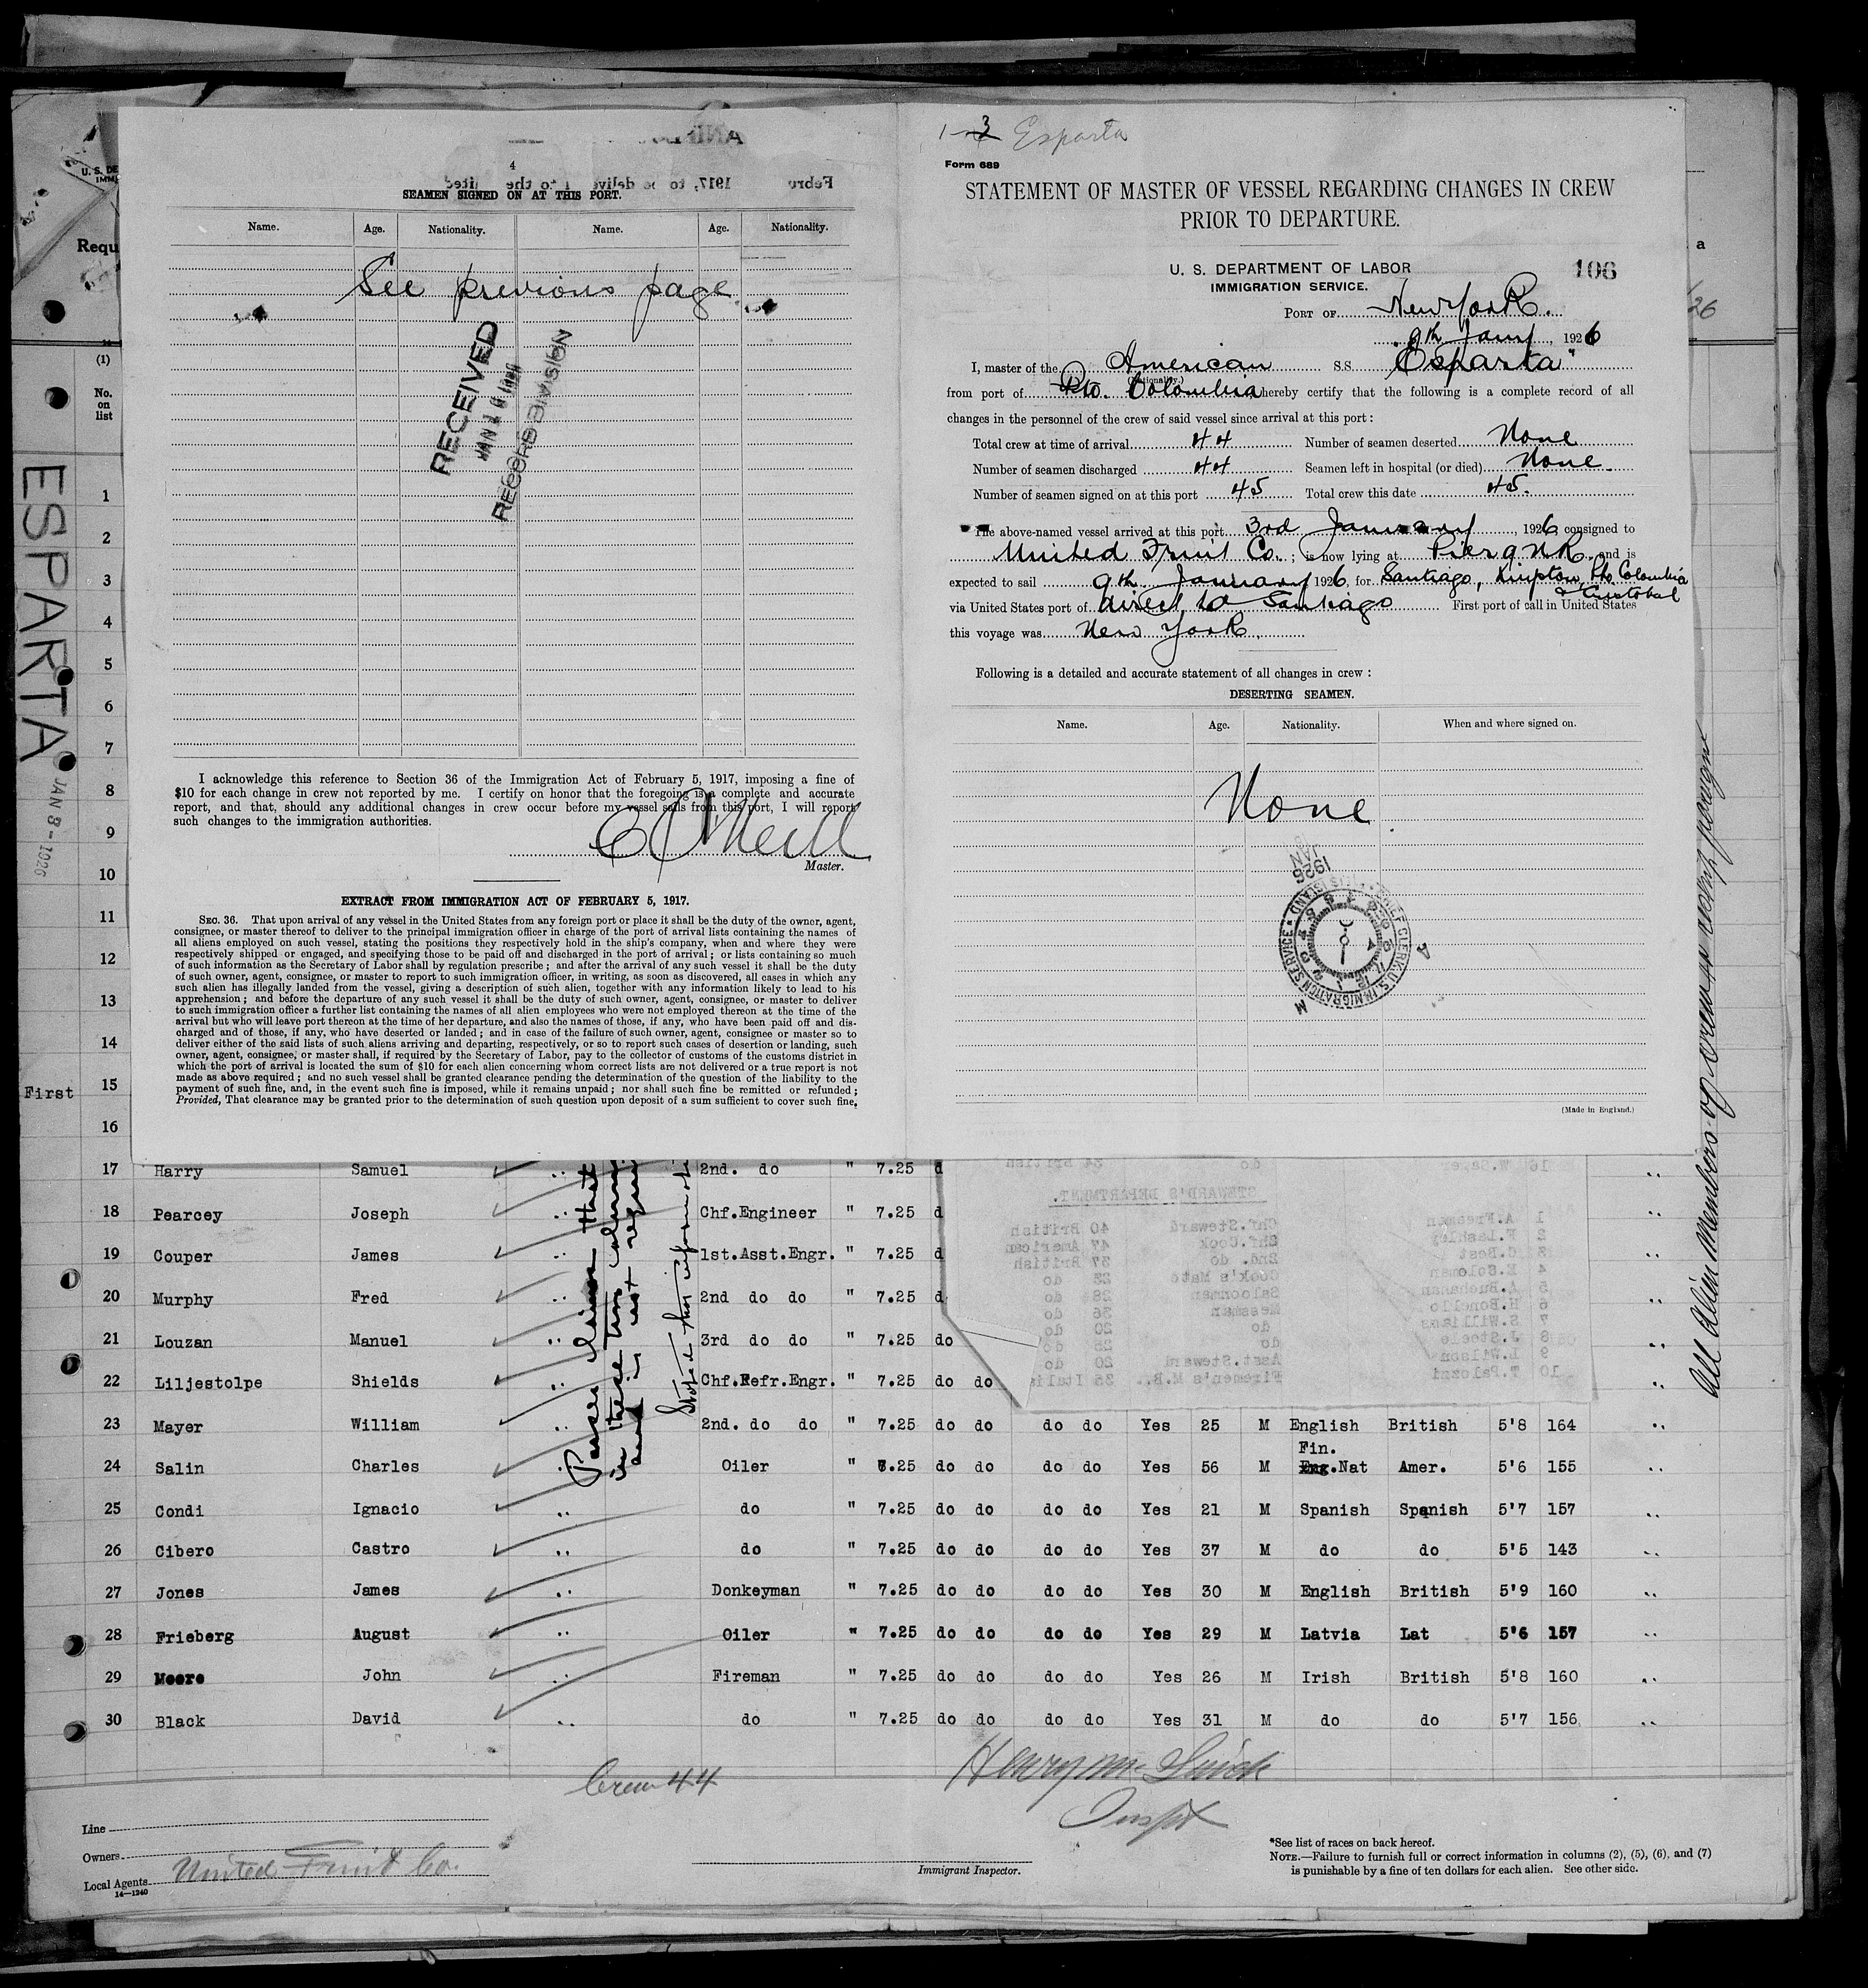 4
SEAMEN SIGNED ON AT THIS PORT.
Name. Age. Nationality. Name. Age. Nationality.
See previous page
RECEIVED
RECORDS DIVISION
I acknowledge this reference to Section 36 of the Immigration Act of February 5, 1917, imposing a fine of
$10 for each change in crew not reported by me. I certify on honor that the foregoing is a complete and accurate
report, and that, should any additional changes in crew occur before my vessel sails from this port, I will report
such changes to the immigration authorities.
C O'Neill
Master.
EXTRACT FROM IMMIGRATION ACT OF FEBRUARY 5, 1917.
SEC. 36. That upon arrival of any vessel in the United States from any foreign port or place it shall be the duty of the owner, agent,
consignee, or master thereof to deliver to the principal immigration officer in charge of the port of arrival lists containing the names of
all aliens employed on such vessel, stating the positions they respectively hold in the ship's company, when and where they were
respectively shipped or engaged, and specifying those to be paid off and discharged in the port of arrival; or lists containing so much
of such information as the Secretary of Labor shall by regulation prescribe; and after the arrival of any such vessel it shall be the duty
of such owner, agent, consignee, or master to report to such immigration officer, in writing, as soon as discovered, all cases in which any
such alien has illegally landed from the vessel, giving a description of such alien, together with any information likely to lead to his
apprehension; and before the departure of any such vessel it shall be the duty of such owner, agent, consignee, or master to deliver
to such immigration officer a further list containing the names of all alien employees who were not employed thereon at the time of the
arrival but who will leave port thereon at the time of her departure, and also the names of those, if any, who have been paid off and dis-
charged and of those, if any, who have deserted or landed; and in case of the failure of such owner, agent, consignee or master so to
deliver either of the said lists of such aliens arriving and departing, respectively, or so to report such cases of desertion or landing, such
owner, agent, consignee, or master shall, if required by the Secretary of Labor, pay to the collector of customs of the customs district in
which the port of arrival is located the sum of $10 for each alien concerning whom correct lists are not delivered or a true report is not
made as above required; and no such vessel shall be granted clearance pending the determination of the question of the liability to the
payment of such fine, and, in the event such fine is imposed, while it remains unpaid; nor shall such fine be remitted or refunded;
Provided, That clearance may be granted prior to the determination of such question upon deposit of a sum sufficient to cover such fine.
1-3 Esparta
Form 689
STATEMENT OF MASTER OF VESSEL REGARDING CHANGES IN CREW
PRIOR TO DEPARTURE.
U. S. DEPARTMENT OF LABOR
IMMIGRATION SERVICE.
106
PORT OF New York.
9th Jany, 1926
I, master of the American SS. Esparta"
(Nationality.)
from port of Pto. Colombia hereby certify that the following is a complete record of all
changes in the personnel of the crew of said vessel since arrival at this port:
Total crew at time of arrival 44 Number of seamen deserted None
Number of seamen discharged 44 Seamen left in hospital (or died) None.
Number of seamen signed on at this port 45 Total crew this date 45.
The above-named vessel arrived at this port 3rd January, 1926 consigned to
United Fruit Co.; is now lying at Pier 9 NR and is
expected to sail 9th January 1926, for Santiago, Kingston, Pto. Colombia
& Cristobal
via United States port of direct to Santiago First port of call in United States
this voyage was New York.
Following is a detailed and accurate statement of all changes in crew:
DESERTING SEAMEN.
Name. Age. Nationality. When and where signed on.
None
JAN 1926
CHIEF CLERK U.S. IMMIGRATION SERVICE ELLIS ISLAND
(Made in England.)
U. S. DE
IMMI
Requ
(1)
No.
on
list
ESPARTA
JAN 8-1926
First
a
/26
1
2
3
4
5
6
7
8
9
10
11
12
13
14
15
16
17 Harry Samuel 2nd. do " 7.25 d
18 Pearcey Joseph Chf.Engineer " 7.25 d
19 Couper James 1st.Asst.Engr. " 7.25 d
20 Murphy Fred 2nd do do " 7.25 d
21 Louzan Manuel 3rd do do " 7.25 do
22 Liljestolpe Shields Chf.Refr.Engr. " 7.25 do do
23 Mayer William 2nd. do do " 7.25 do do do do Yes 25 M English British 5'8 164
Fin.
24 Salin Charles Oiler " 7.25 do do do do Yes 56 M Eng.Nat Amer. 5'6 155
25 Condi Ignacio do " 7.25 do do do do Yes 21 M Spanish Spanish 5'7 157
26 Cibero Castro do " 7.25 do do do do Yes 37 M do do 5'5 143
27 Jones James Donkeyman " 7.25 do do do do Yes 30 M English British 5'9 160
28 Frieberg August Oiler " 7.25 do do do do Yes 29 M Latvia Lat 5'6 157
29 Moore John Fireman " 7.25 do do do do Yes 26 M Irish British 5'8 160
30 Black David do " 7.25 do do do do Yes 31 M do do 5'7 156
Purser claims that
in these two columns
STEWARD'S DEPARTMENT.
1 A.Freeman Chf.Steward 40 British
2 F.Lashley Chf.Cook 47 American
3 C.Best 2nd. do 37 British
4 E.Soloman Cook's Mate 23 do
5 A.Buchanan Saloonman 28 do
6 H.Bonello Messman 36 do
7 S.Williams do 20 do
8 J.Steele do 25 do
9 L.Wilson Asst.Steward 20 do
10 T.Palozzi Firemen's M.B. 35 Itali
All Alien Members of crew
Crew 44
Inspt
Line
Owners
Local Agents United Fruit Co.
14—1240
Immigrant Inspector.
*See list of races on back hereof.
NOTE.—Failure to furnish full or correct information in columns (2), (5), (6), and (7)
is punishable by a fine of ten dollars for each alien. See other side.